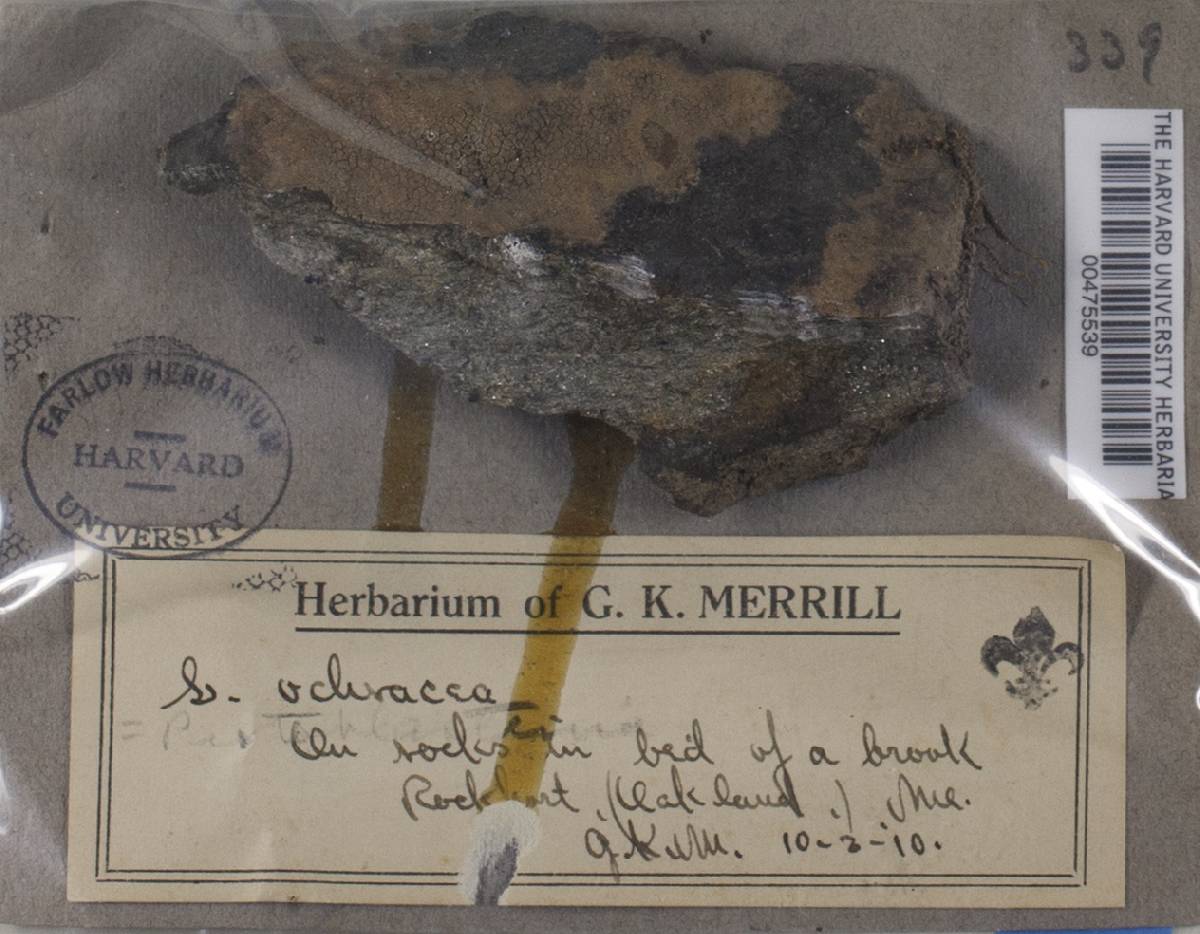 339
THE HARVARD UNIVERSITY HERBARIA
00475539
FARLOW HERBARIUM
HARVARD
UNIVERSITY
Herbarium of G. K. MERRILL
ochracea
On rocks in bed of a brook
Rockport (Oakland.) Me.
G.K.M. 10-2-10.